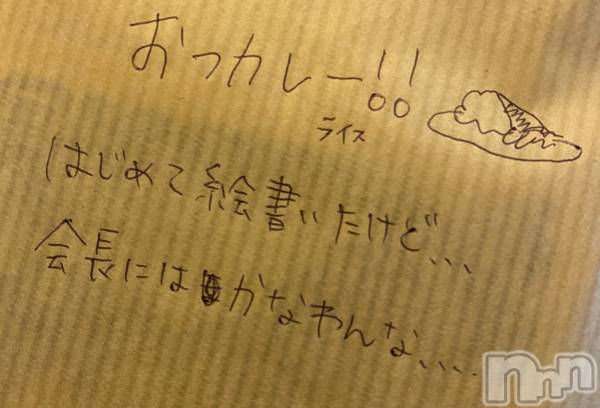 おつカレー!!
ライス
はじめて絵書いたけど...
会長にはかなわんない....
nnn